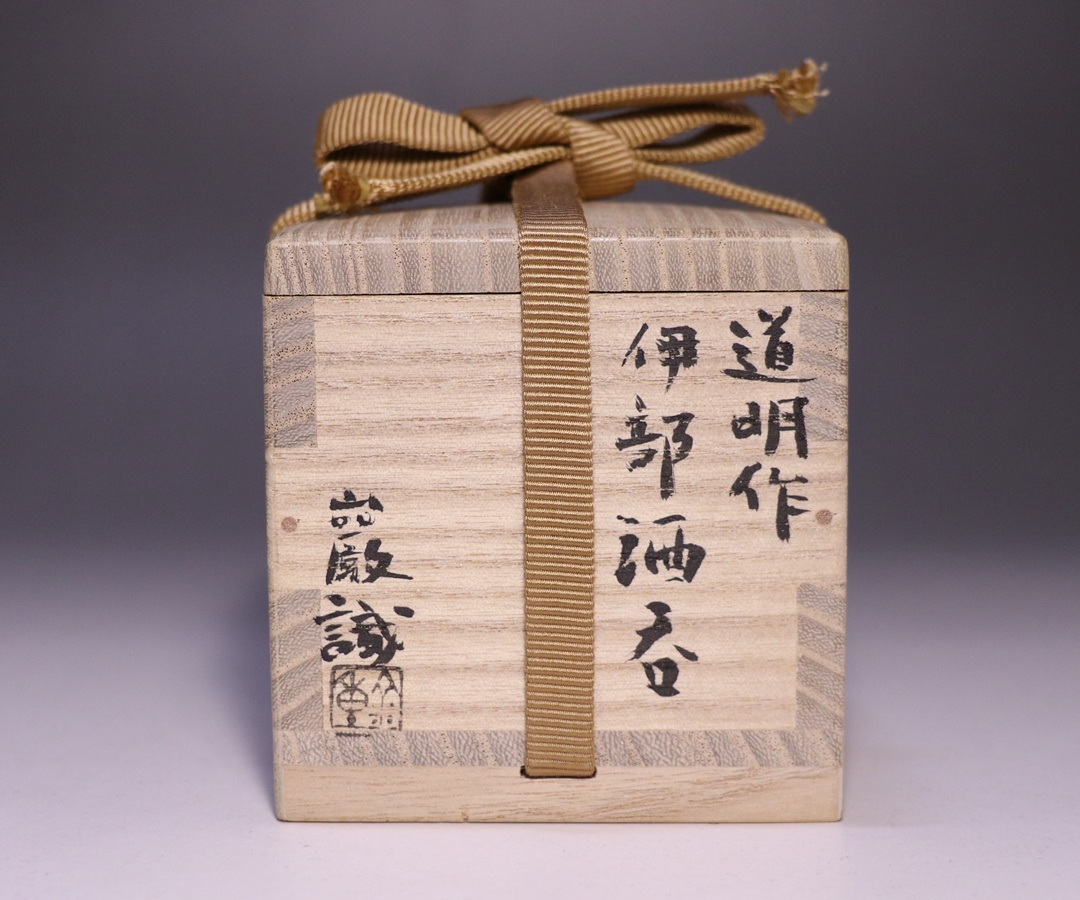 道明作
伊部酒呑
巌識